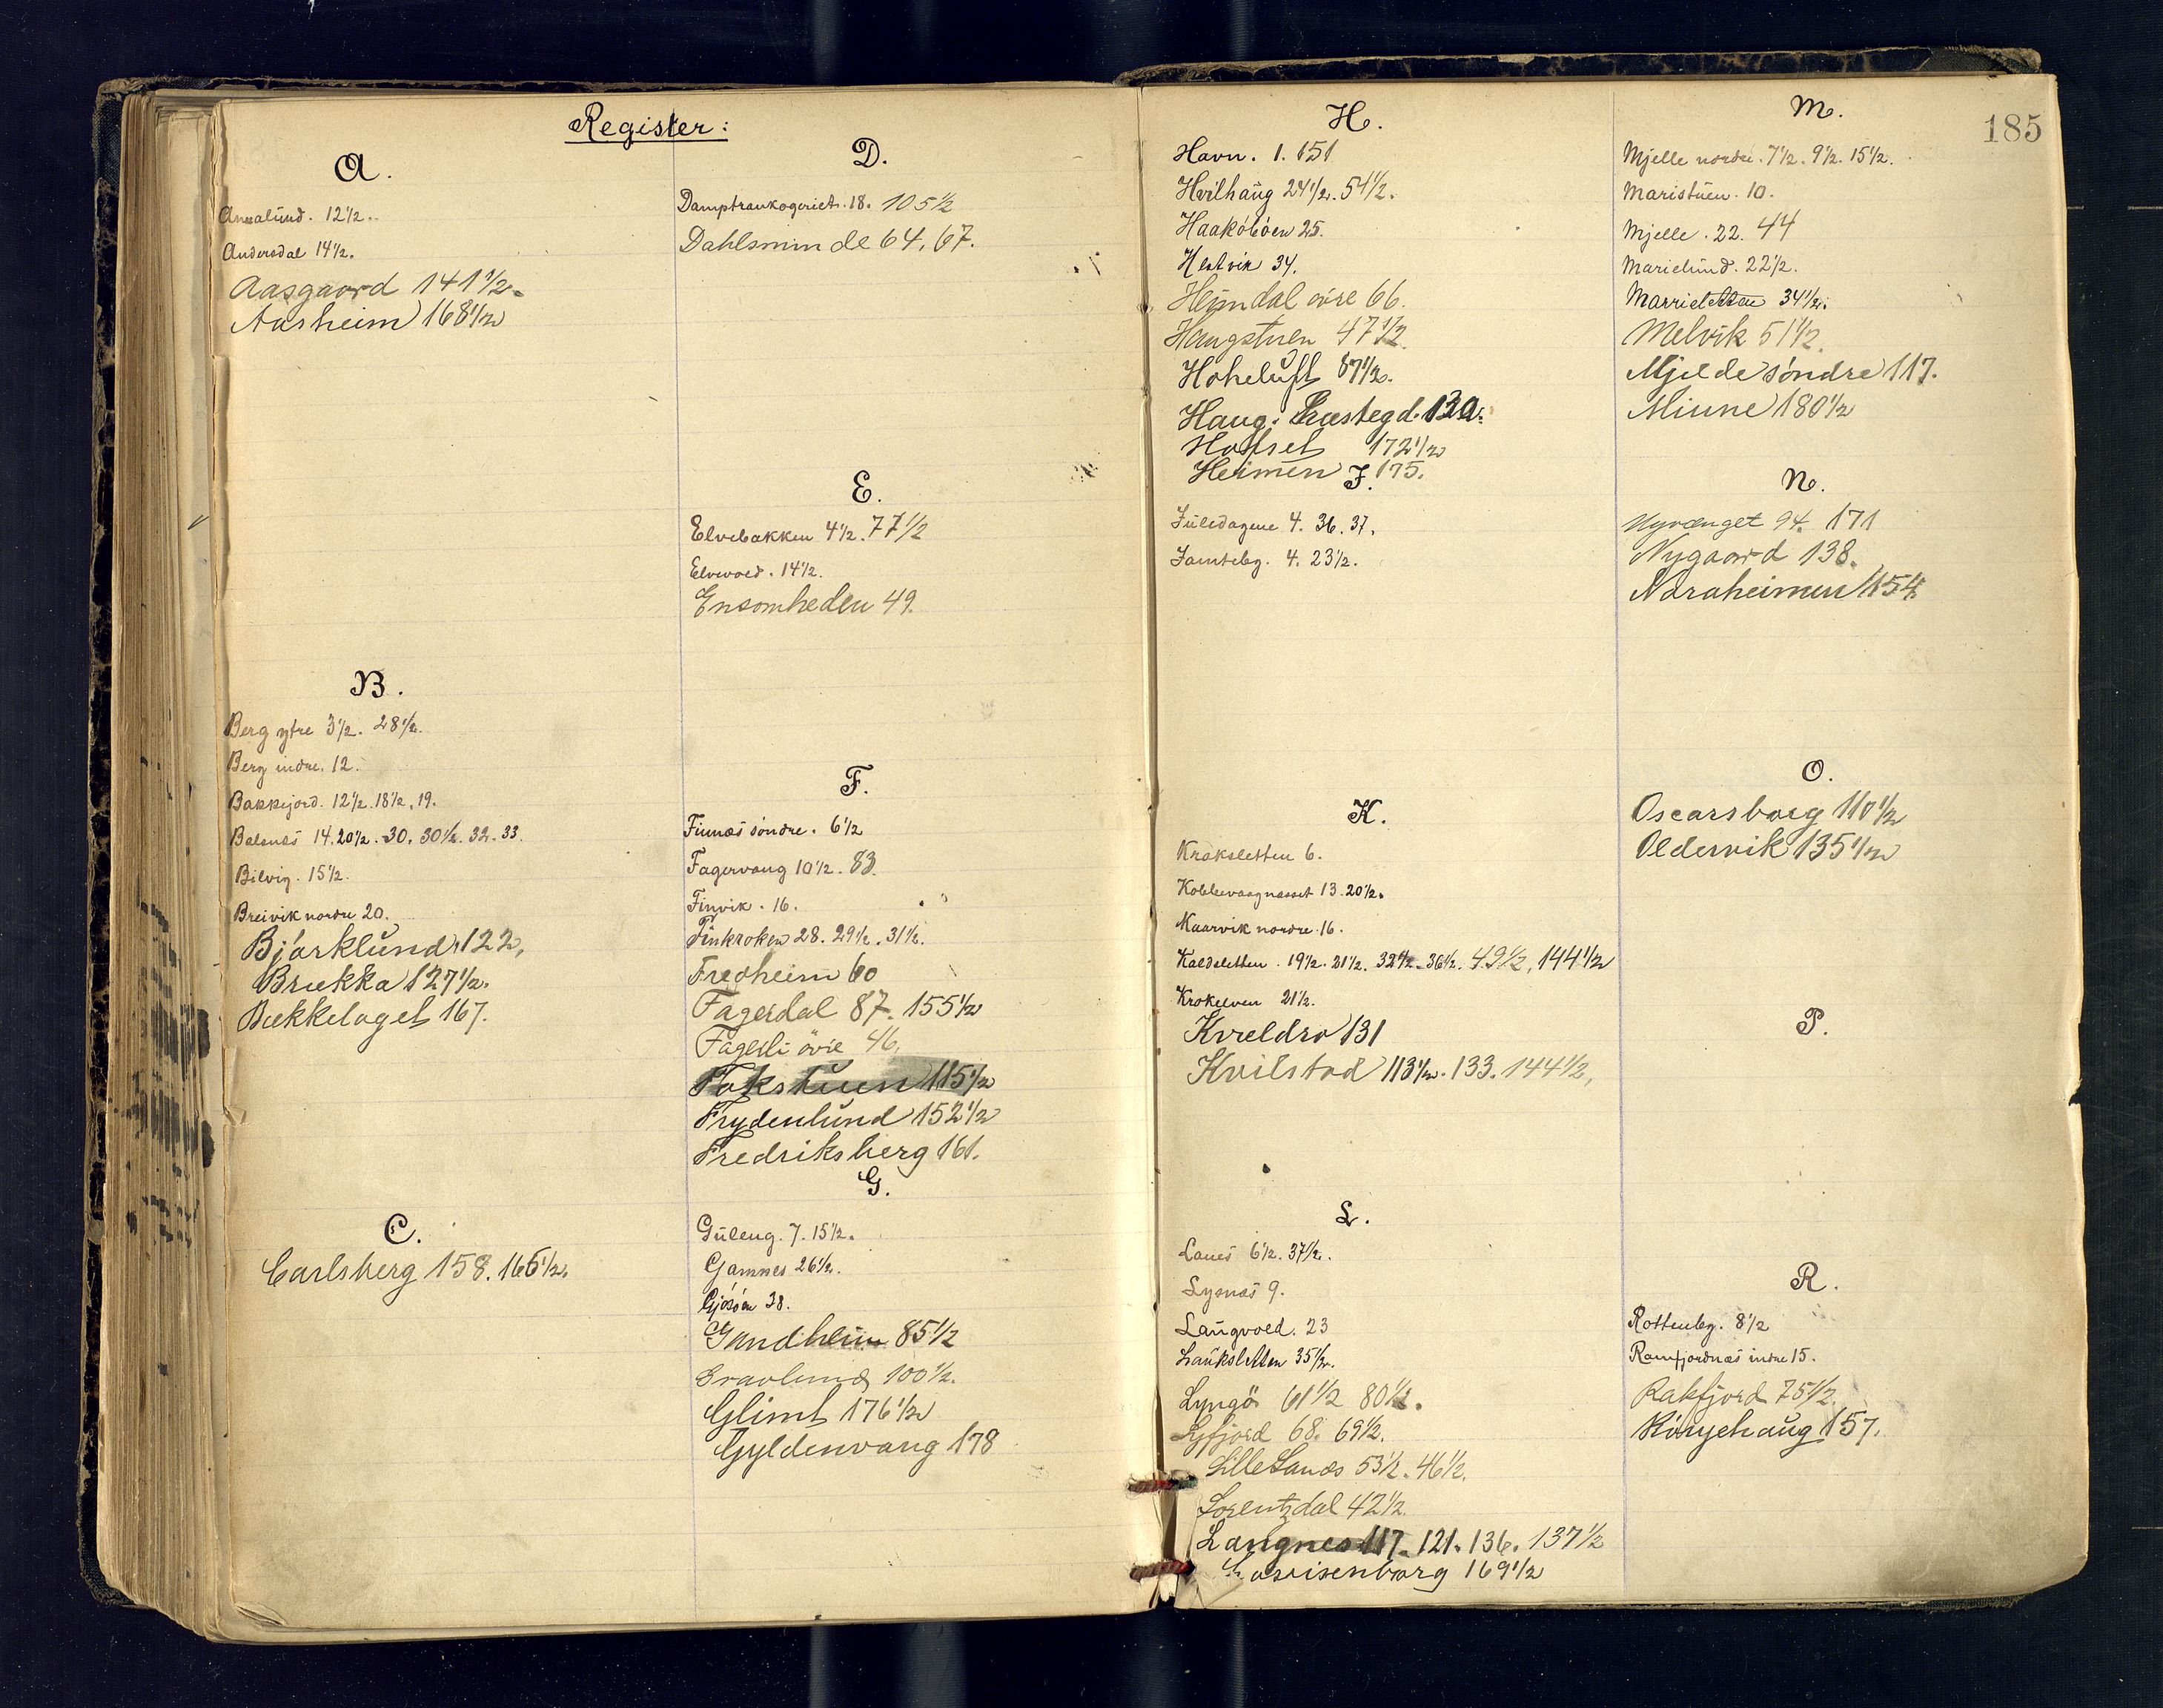 Register:
A.
Annalund. 12½.
Andersdal 14½.
Aasgaard 141½.
Aasheim 168½
B.
Berg ytre 3½. 28½.
Berg indre. 12.
Bakkejord. 12½. 18½, 19.
Balsnæs 14. 20½. 30. 30½. 32. 33.
Bilvig. 15½.
Breivik nordre 20.
Bjørklund 122.
Brækka 127½.
Bækkelaget 167.
C.
Carlsberg 158. 165½.
D.
Damptrankogeriet. 18. 105½
Dahlsminde 64, 67.
E.
Elvebakken 4½. 77½
Elvevold. 14½.
Ensomheden 49.
F.
Finnæs søndre. 6½
Fagervang 10½. 83.
Finvik. 16.
Finkroken 28. 29½. 31½.
Fredheim 60
Fagerdal 87. 155½
Fagerli øvre 46.
Fokstuen 115½
Frydenlund 152½
Fredriksberg 161.
G.
Guleng. 7. 15½.
Gamnes 26½.
Gjøsøen 38.
Grandheim 85½
Gravlund 100½.
Glimt 176½
Gyldenvang 178
185
H.
Havn. 1. 151
Hvilhaug 24½. 54½.
Haakøbøen 25.
Hestvik 34.
Heimdal øvre 66.
Haugstuen 47½
Høheluft 87½.
Haug: Præstegd. 130.
Hofset 172½
Heimen 175.
J.
Juledagene 4. 36. 37.
Jamtebg. 4. 23½.
K.
Kraksletten 6.
Kobbevaagnæsset 13. 20½.
Kaarvik nordre. 16.
Kaldsletten. 19½. 21½. 32½. 36½. 49½, 144½
Krokelven 21½.
Kveldro 131
Kvilstad 113½. 133. 144½,
L.
Lanes 6½. 37½.
Lysnæs 9.
Langvold. 23
Lauksletten 35½.
Lyngø 61½ 80½.
Lyfjord 68. 69½.
Lille Lanæs 53½. 46½.
Lorentzdal 42½.
Langnes 117. 121. 136. 137½
Lovisenborg 169½
M.
Mjelle nordre. 7½. 9½. 15½.
Maristuen. 10.
Mjelle. 22. 44
Marielund. 22½.
Marisletten 34½.
Melvik 51½.
Mjelde søndre 117.
Minne 180½
N.
Nyvænget 94. 171
Nygaard 138.
Noraheimen 154.
O.
Oscarsborg 110½
Oldervik 135½
P.
R.
Rottenbg. 8½
Ramfjordnæs indre 15.
Rakfjord 75½.
157.